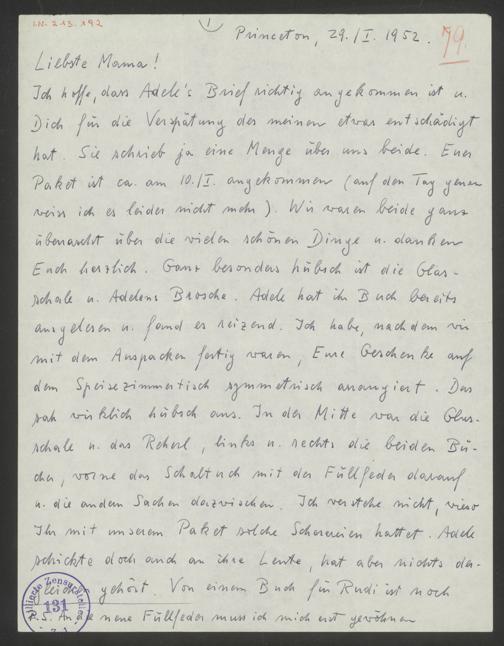 I.N. 213.192
1
Princeton, 29./I. 1952.
79.
Liebste Mama!
Ich hoffe, dass Adele's Brief richtig angekommen ist u.
Dich für die Verspätung des meinen etwas entschädigt
hat. Sie schrieb ja eine Menge über uns beide. Euer
Paket ist ca. am 10./I. angekommen (auf den Tag genau
weiss ich es leider nicht mehr). Wir waren beide ganz
überrascht über die vielen schönen Dinge u. danken
Euch herzlich. Ganz besonders hübsch ist die Glas-
schale u. Adelens Brosche. Adele hat ihr Buch bereits
ausgelesen u. fand es reizend. Ich habe, nachdem wir
mit dem Auspacken fertig waren, Eure Geschenke auf
dem Speisezimmertisch symmetrisch arrangiert. Das
sah wirklich hübsch aus. In der Mitte war die Glas-
schale u. das Reherl, links u. rechts die beiden Bü-
cher, vorne das Schaltuch mit der Füllfeder darauf
u. die andern Sachen dazwischen. Ich verstehe nicht, wieso
Ihr mit unserem Paket solche Scherereien hattet. Adele
schickte doch auch an ihre Leute, hat aber nichts der-
gehört. Von einem Buch für Rudi ist noch
P.S. An die neue Füllfeder muss ich mich erst gewöhnen
Alliierte Zensurstelle
131